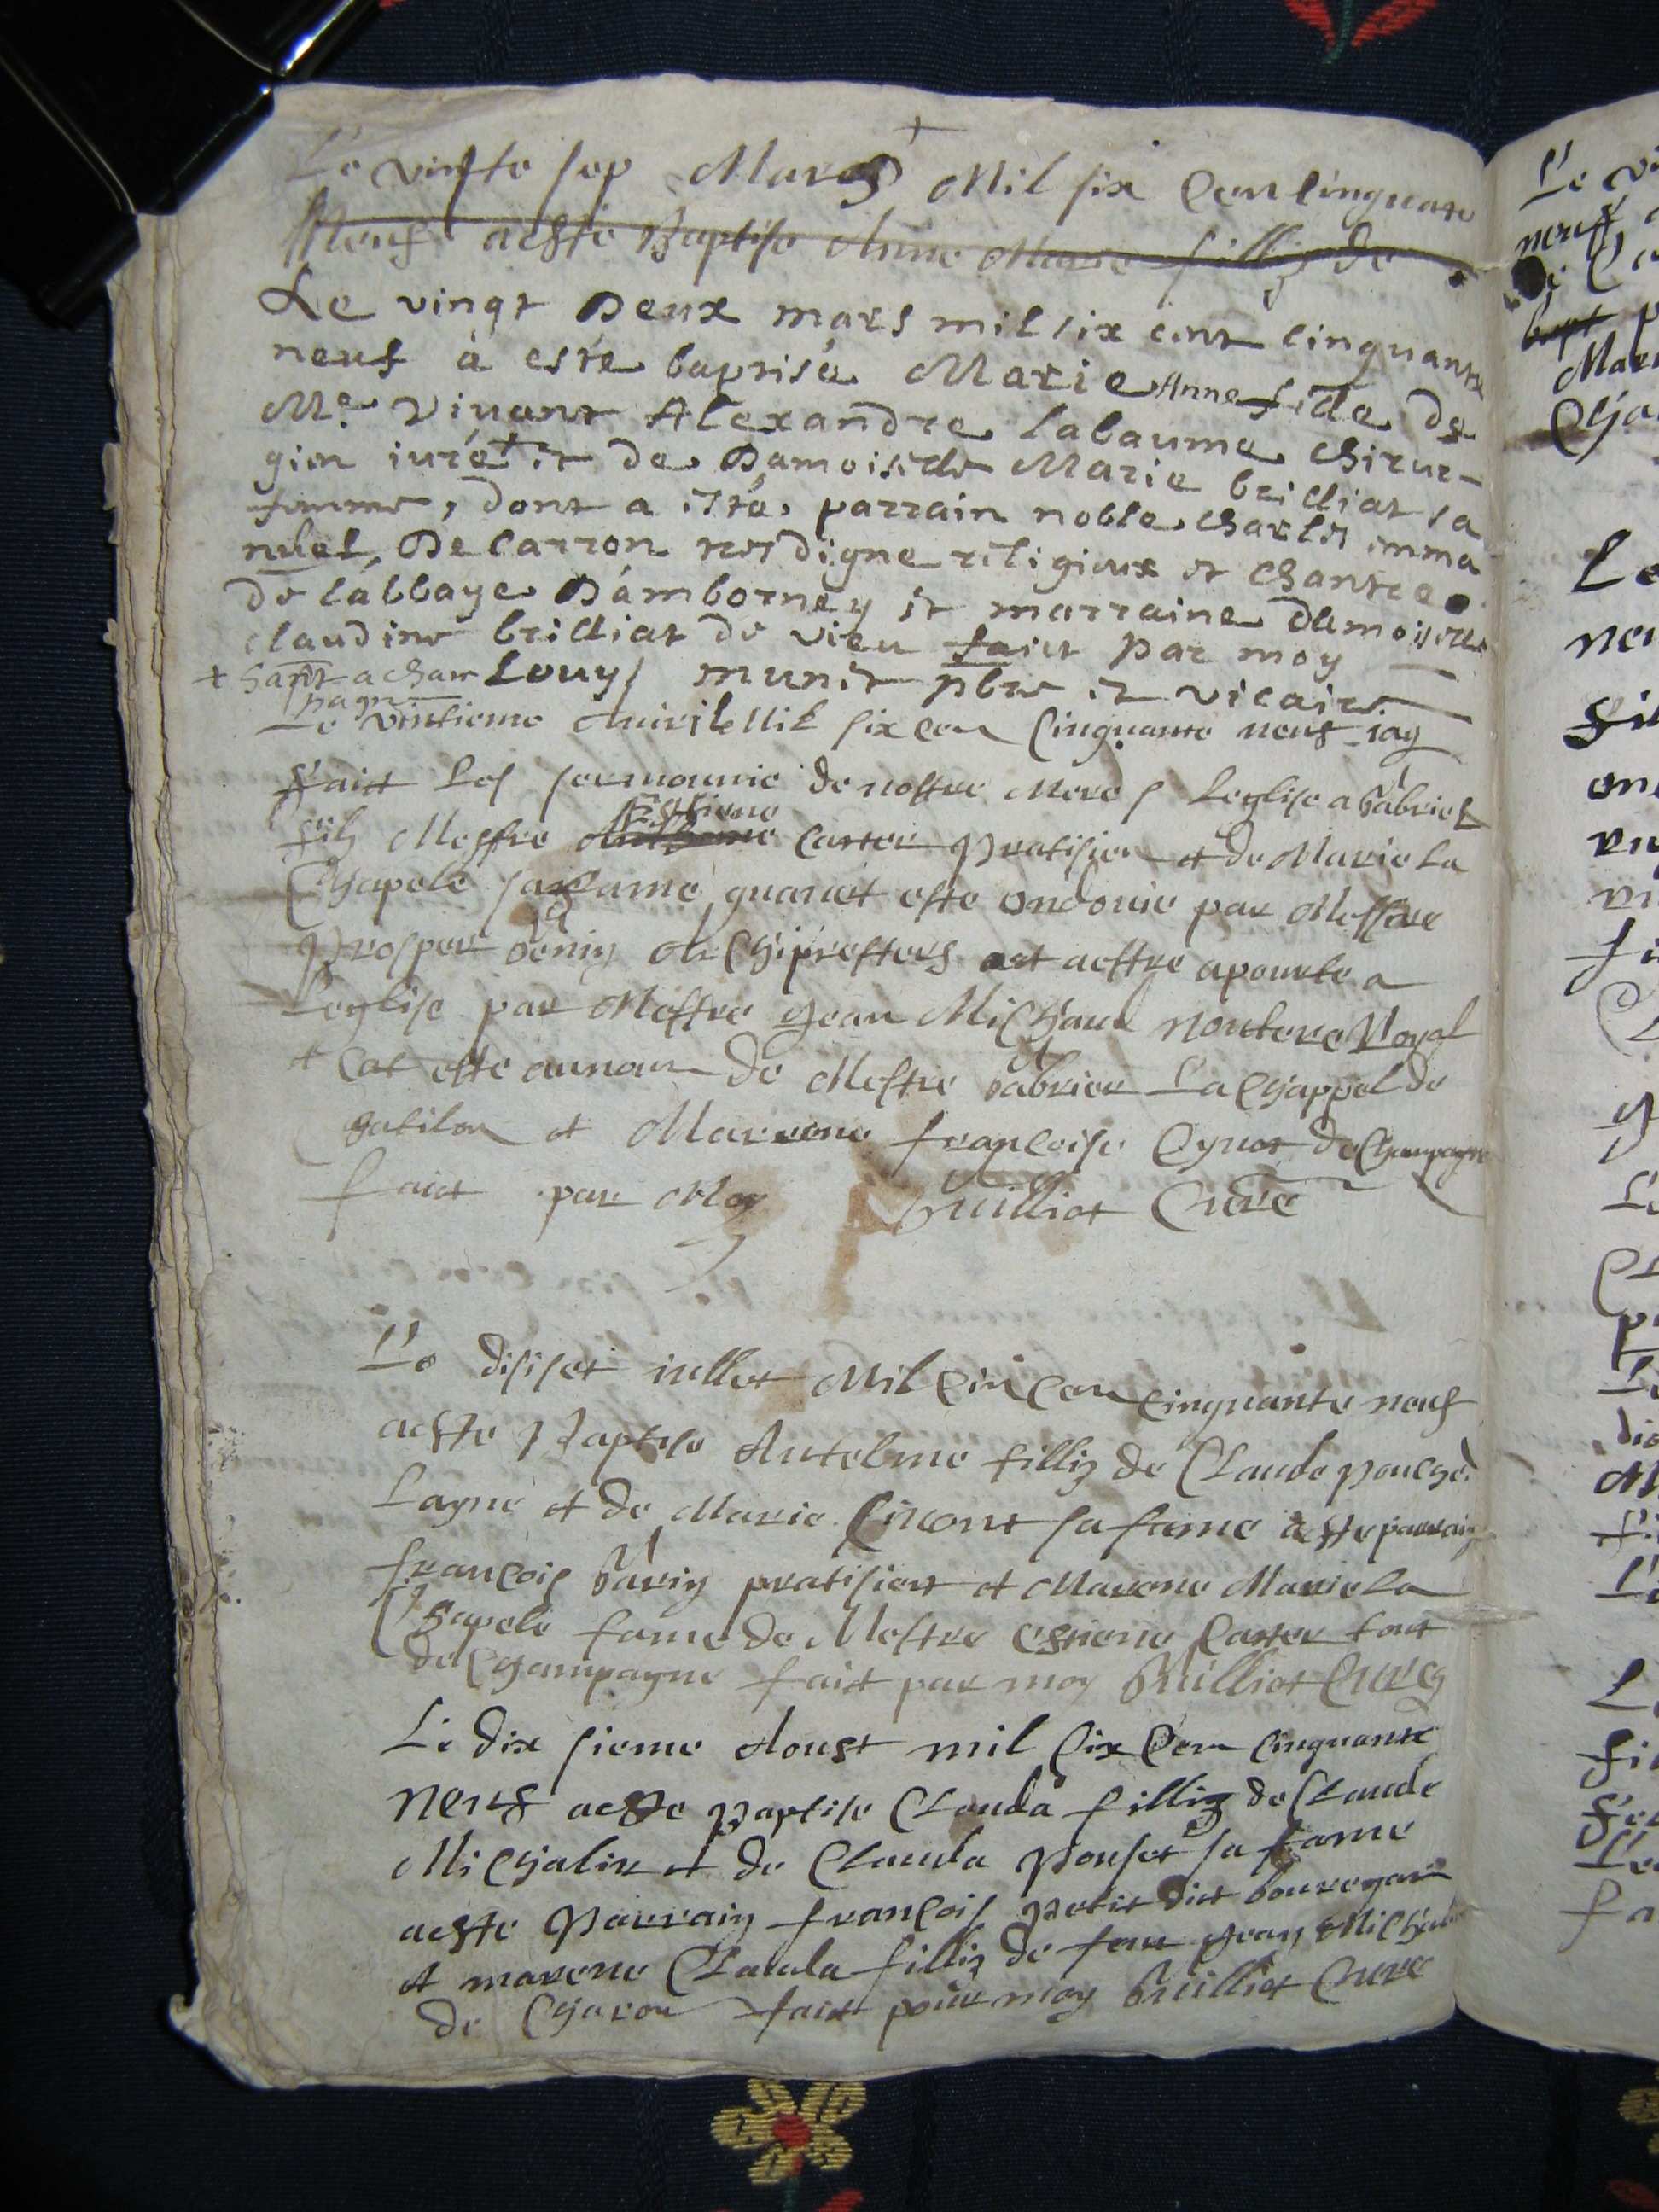 Le vinste sep Mars Mil six cen cinquante
Neuf aeste Baptise Anne Marie fillis de
Le vingt deux mars mil six cent cinquante
neuf à esté baptisé Marie Anne fille de
Me Viuant Alexandre labaume chirur-
gien iuré + et de Damoiselle Marie brilliat sa
femme, dont a esté parrain noble charles emma
nuel De carron tresdigne religieux et chantre
de l'abbaye D'amborney et marraine damoiselle
claudine brilliat de vieu faict par moy
+ habt a cham
pagne
Louys munet pbre et vicaire
Le vintieme Auiril Mil six cen cinquante neuf iay
faict les sermounie de nostre Mere s leglise a Gabriel
fils Mestre Estiene Carrer pratisien et de Marie La
Chapele sa fame quauet este ondouie par Messire
Prosper Genin Archiprestres et aestre apourte a
Leglise par Mestre Jean Michaud noutere Royal
+ cat este aunom de Mestre Gabriel La Chappel de
gatilon et Marrene francoise Cynot de Champagne
faict par Moy Brilliot Cure
Le disiset iullet Mil cix cen cinquante neuf
aeste Baptise Antelme fillis de Claude
Layne et de Marie sa fame aeste parrain
francois Garin pratisient et Marene Marie La
Chapele fame de Mestre Estiene Carrer tout
de Champagne faict par moy Brilliot Cure
Le dix sieme Aoust mil six cen cinquante
neuf aeste Baptise Clauda fillis de Claude
Michalin et de Clauda Ponset sa fame
aeste Parrain francois Petit dict
et marene Clauda fillis de feu Jean
de Charon faict pour moy Brilliot Cure